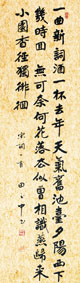 一曲新詞酒一杯去年天氣舊池臺夕陽西下
幾時回無可奈何花落去似曾相識燕歸來
小園香徑獨徘徊
宋詞一首